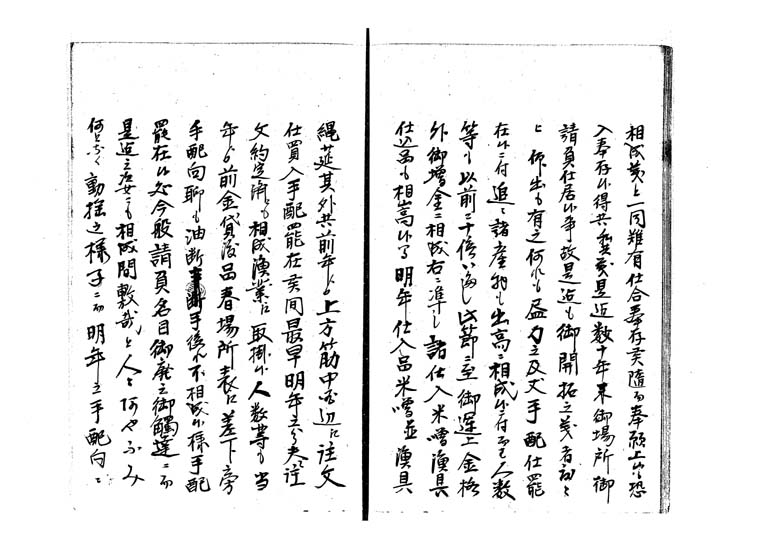 相成義と一同難有仕合奉存候随而奉願上候恐
入奉存候得共私共義是迄数十年来御場所御
請負仕居候事故是迄も御開拓之義者初ゟ
被仰出も有之何れも尽力之及丈手配仕罷
在候ニ付追々諸産物も出高ニ相成候ニ付而も人数
等も以前ニ十倍いたし此節ニ至御運上金格
外御増金ニ相成右ニ準し諸仕入米噌漁具
仕込品も相嵩候間明年仕入品米噌並漁具
縄莚其外共前年ゟ上方筋中国辺江注文
仕買入手配罷在義間最早明年立ゟ夫注
文約定済も相成漁業江取掛候人数等も当
年ゟ前金貸渡品春場所表江差下方
手配向聊も油断手後れ不相成候様手配
罷在候処今般請負名目御廃之御觸達ニ而
是迄之応ニも相成間敷哉と人々阿やふみ
何となく動揺之様子ニ而明年之手配向ニ